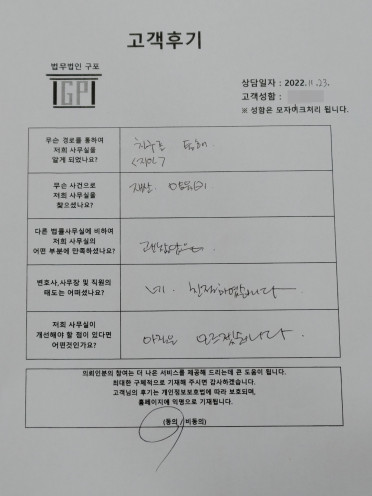 고객후기
법무법인 구포
IGPI
상담일자 : 2022. 11. 23.
고객성함 :
※ 성함은 모자이크처리 됩니다.
무슨 경로를 통하여
저희 사무실을
알게 되었나요?
친구를 통해
<지인>
무슨 사건으로
저희 사무실을
찾으셨나요?
재산
다른 법률사무실에 비하여
저희 사무실의
어떤 부분에 만족하셨나요?
변호사,사무장 및 직원의
태도는 어떠셨나요?
네. 친절하였습니다
저희 사무실이
개선해야 할 점이 있다면
어떤것인가요?
아직은 모르겠습니다
의뢰인분의 참여는 더 나은 서비스를 제공해 드리는데 큰 도움이 됩니다.
최대한 구체적으로 기재해 주시면 감사하겠습니다.
고객님의 후기는 개인정보보호법에 따라 보호되며,
홈페이지에 익명으로 기재됩니다.
(동의 / 비동의)